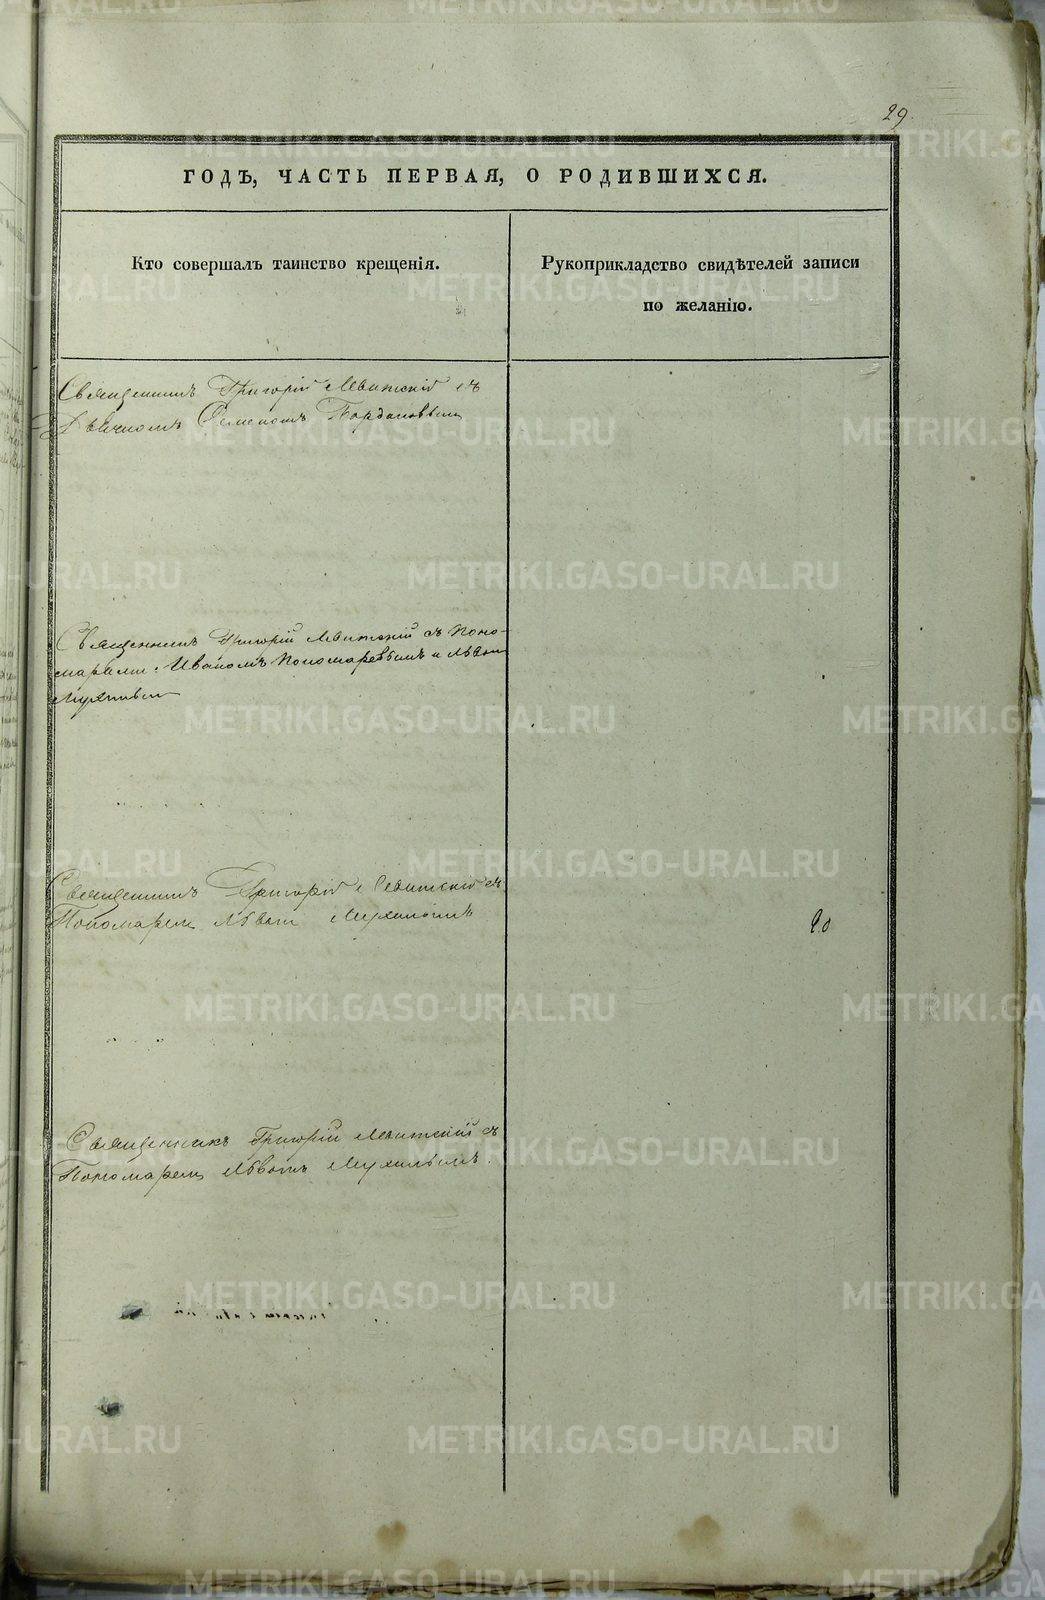 29.
ГОДЪ, ЧАСТЬ ПЕРВАЯ, О РОДИВШИХСЯ.
Кто совершалъ таинство крещенія.
Рукоприкладство свидѣтелей записи
по желанію.
Священникъ Григорій Левитскій съ
Дьячкомъ
Священникъ Григорій Левитскій съ Поно-
маремъ Иваномъ Пономаревымъ и Львомъ
Священникъ Григорій Левитскій съ
Пономаремъ Львомъ
20
Священникъ Григорій Левитскій съ
Пономаремъ Львомъ
METRIKI.GASO-URAL.RU